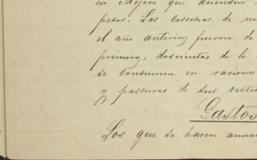 en Mejico que ascienden
pesos. Las cosechas de m
el año anterior fueron de
primero, doscientas de lo
se consumen en raciones
y pasturas de sus besti
Gastos
Los que se hacen anua